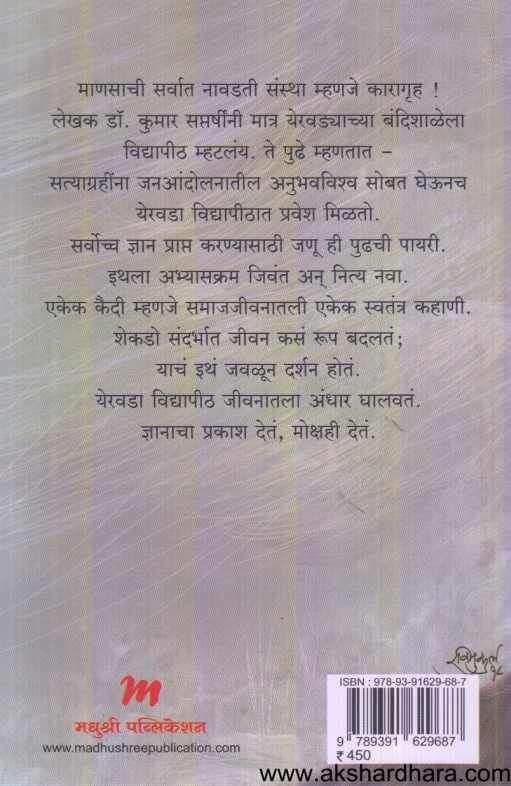 माणसाची सर्वात नावडती संस्था म्हणजे कारागृह !
लेखक डॉ. कुमार सप्तर्षींनी मात्र येरवड्याच्या बंदिशाळेला
विद्यापीठ म्हटलंय. ते पुढे म्हणतात –
सत्याग्रहींना जनआंदोलनातील अनुभवविश्व सोबत घेऊनच
येरवडा विद्यापीठात प्रवेश मिळतो.
सर्वोच्च ज्ञान प्राप्त करण्यासाठी जणू ही पुढची पायरी.
इथला अभ्यासक्रम जिवंत अन् नित्य नवा.
एकेक कैदी म्हणजे समाजजीवनातली एकेक स्वतंत्र कहाणी.
शेकडो संदर्भात जीवन कसं रूप बदलतं;
याचं इथं जवळून दर्शन होतं.
येरवडा विद्यापीठ जीवनातला अंधार घालवतं.
ज्ञानाचा प्रकाश देतं, मोक्षही देतं.
मधुश्री पब्लिकेशन
www.madhushreepublication.com
ISBN : 978-93-91629-68-7
9 789391 629687
₹ 450
www.akshardhara.com